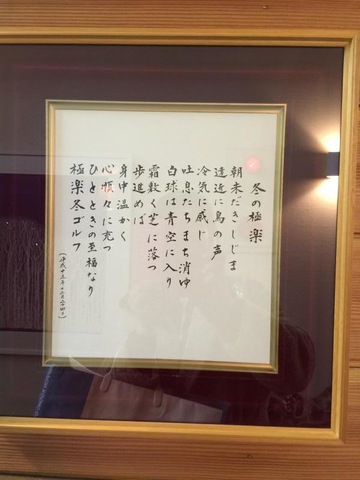 冬の極楽
朝未だきしじま
遠近に鳥の声
冷気に感じ
吐息たちまち消ゆ
白球は青空に入り
霜敷く芝に落つ
歩進めば
身中温かく
心悵々に充つ
ひとときの至福なり
極楽冬ゴルフ
(平成十三年十二月二十四日)